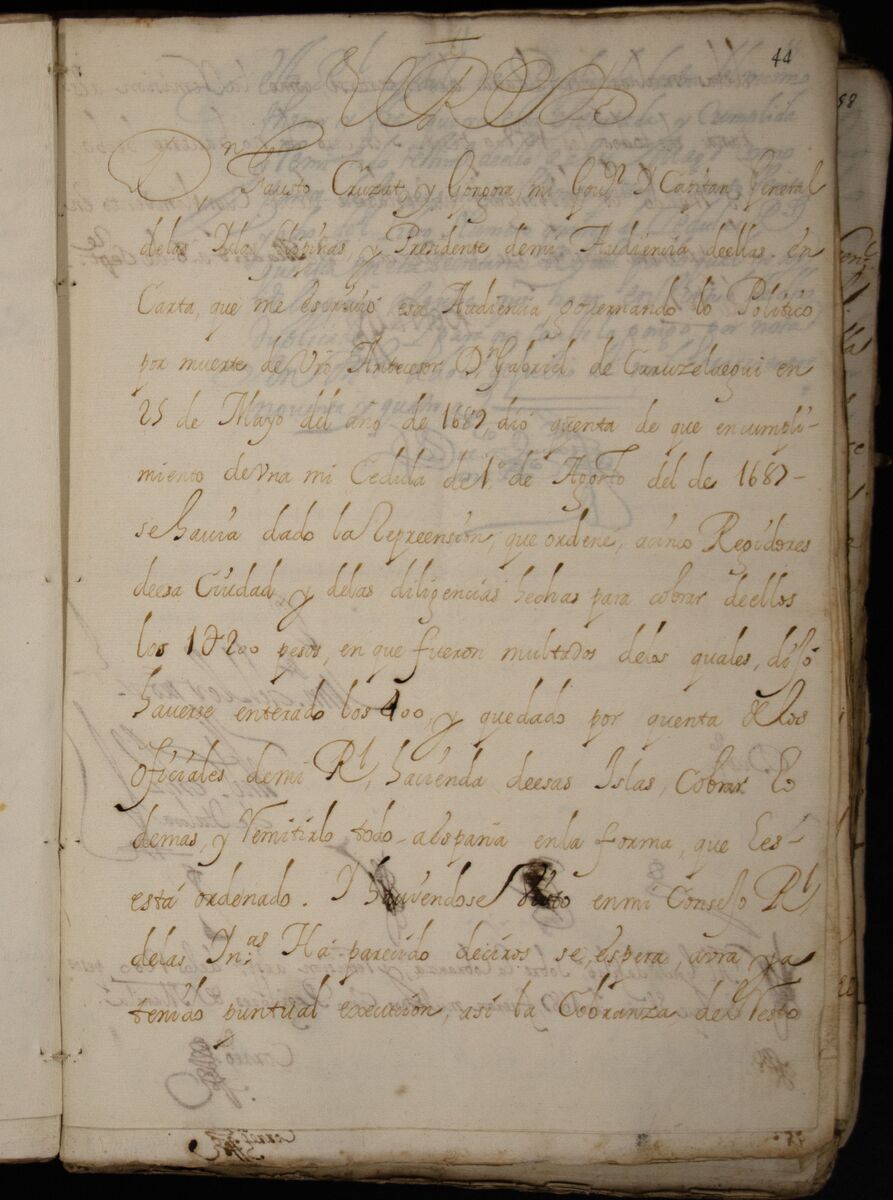 44
El Rey
Dn Fausto Cruzat, y Gongora, mi Govn. Y Capitan General
delas Yslas Filipinas, y Presidente demi Audiencia deellas. en
Carta, que me escrivió esa Audiencia, governando lo Politico
por muerte de Vro Antecesor Dn Gabriel de Curuzelaegui en
25 de Mayo del año de 1689 dió quenta de que encumpli-
miento deVna mi Cedula de 1º de Agosto del de 1687-
se havia dado la Repreension, que ordené, acinco Regidores
deesa Ciudad y delas diligencias hechas para cobrar deellos
los 1U200 pesos, en que fueron multados delos quales, dijó
haverse enterado los 400, y quedado por quenta de los
Oficiales demi Rl, hacienda deesas Islas, Cobrar lo
demas, y Remitirlo todo aespaña enla forma, que les-
está ordenado. Y haviendose Visto enmi Consejo Rl,
delas Inas Ha parecido deciros se, espera, avrá ya
tenido puntual execucion, asi la Cobranza del Resto